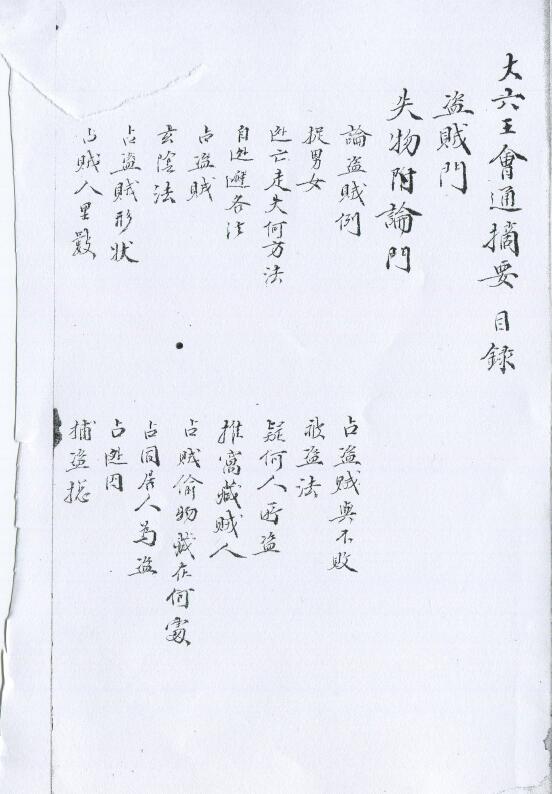 大六壬會通摘要 目錄
盜賊門
失物附論門
論盜賊例
捉男女
逃亡走失何方法
自逃避各法
占盜賊
玄陰法
占盜賊形狀
占賊人里數
占盜賊與不敗
被盜法
疑何人所盜
推窩藏賊人
占賊偷物藏在何處
占同居人為盜
占逃囚
捕盜